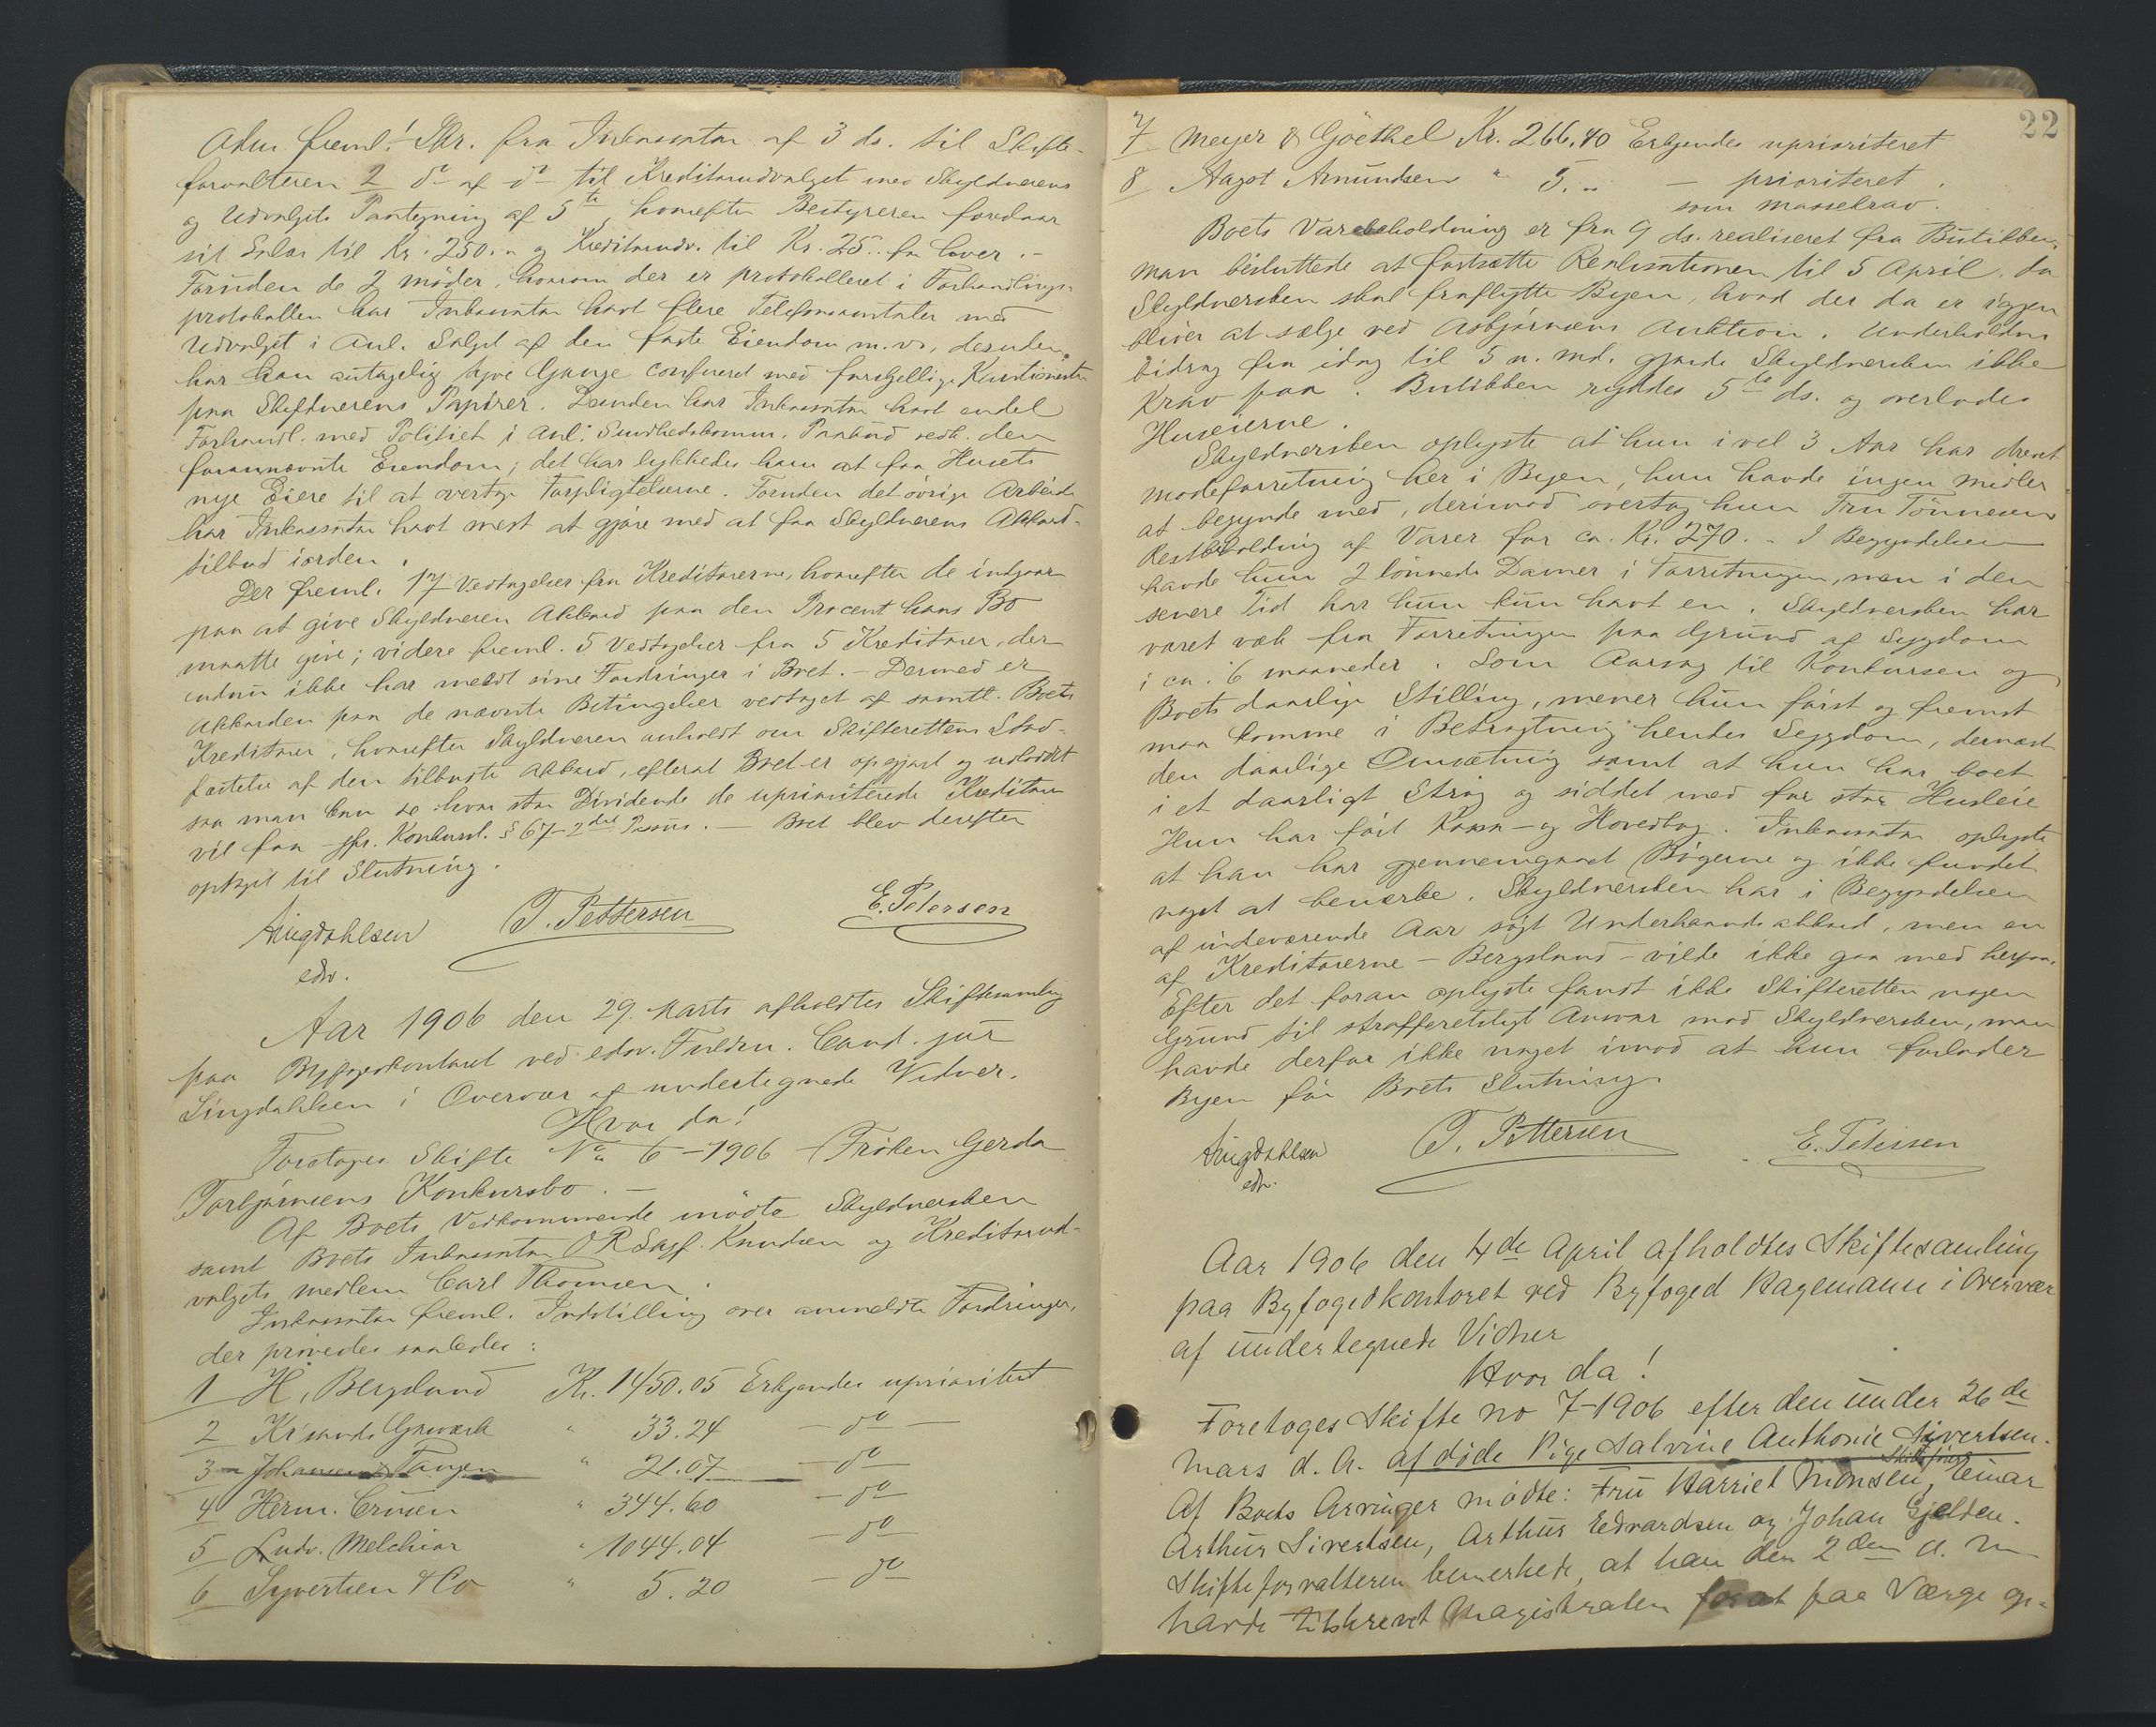 freml. Skr. fra Inkassator af 3 ds. til Skifte-
forvalteren 2 do af do til Kreditorudvalget med Skyldnerens
og Udvalgets Paategning af 5te, hvorefter Bestyreren foreslaar
sit Salær til Kr. 250.„ og Kreditorudv. til Kr. 25.. for hver.-
Foruden de 2 möder, hvorom der er protokolleret i Forhandlings-
protokollen har Inkassator havt flere Telefonsamtaler med
Udvalget i Anl. Salget af den faste Eiendom m.v., desuden
har han antagelig tyve Gange confereret med forskjellige
paa Skyldnerens Papirer. Desuden har Inkassator havt endel
Forhandl. med Politiet i Anl. Sundhedskomm. Paabud vedk. den
forannævnte Eiendom; det har lykkedes ham at faa Husets
nye Eiere til at overtage Forpligtelserne. Foruden det övrige Arbeide
har Inkassator havt mest at gjöre med at faa Skyldnerens Akkord-
tilbud iorden.
Der freml. 17 Vedtagelser fra Kreditorerne, hvorefter de indgaar
paa at give Skyldneren Akkord paa den Procent hans Bo
maatte give; videre freml. 5 Vedtagelser fra 5 Kreditorer, der
endnu ikke har meldt sine Fordringer i Boet. – Dermed er
Akkorden paa de nævnte Betingelser vedtaget af samtl. Boets
Kreditorer, hvorefter Skyldneren anholdt om Skifterettens Stad-
fæstelse af den tilbudte Akkord, efterat Boet er opgjort og udloddet
saa man kan se hvor stor Dividende de uprioriterede Kreditorer
vil faa – jfr. Konkursl. § 67 – 2det Passus. – Boet blev derefter
optaget til Slutning.
Lingdahlsen T. Pettersen E. Petersen
edsv.
Aar 1906 den 29. Marts afholdtes Skiftesamling
paa Byfogedkontoret ved edsv. Fuldm. Cand. jur
Lingdahlsen i Overvær af undertegnede Vidner.
Hvor da!
Foretoges Skifte No 6 – 1906 – Fröken Gerda
Torbjörnsens Konkursbo. –
Af Boets Vedkommende mödte Skyldnersken
samt Boets Inkassator O R Sagf. Knudsen og Kreditorud-
valgets medlem Carl Thomsen.
Inkassator freml. Indstilling over anmeldte Fordringer,
der prövedes saaledes:
1 H. Bergslund Kr. 1450.05 Erkjendes uprioritert
2 Kr'sands Gasværk " 33.24 – do –
3 Johannes Tangen " 21.07 – do
4 Herm. Crüsen " 344.60 – do
5 Ludv. Melchior " 1044.04 – do
6 Syvertsen & Co " 5.20 – do
22
7 Meyer & Göethel Kr. 266.40 Erkjendes uprioriteret
8 Aagot Amundsen " 5.„ – prioriteret.
som massekrav.
Boets Varebeholdning er fra 9 ds. realiseret fra Butikken,
man besluttede at fortsætte Realisationen til 5 April, da
Skyldnersken skal fraflytte Byen, hvad der da er igjen
bliver at sælge ved Asbjörnsens Auktion. Underholdns
bidrag fra idag til 5 n. md. gjorde Skyldnersken ikke
Krav paa. Butikken ryddes 5te ds. og overlades
Huseierne.
Skyldnersken oplyste at hun i vel 3 Aar har drevet
modeforretning her i Byen, hun havde ingen midler
at begynde med, derimod overtog hun Fru Tönnesens
Restbeholdning af Varer for ca. Kr. 270.– I Begyndelsen
havde hun 2 lönnede Damer i Forretningen, men i den
senere Tid har hun kun havt en. Skyldnersken har
været væk fra Forretningen paa Grund af Sygdom
i ca. 6 maaneder. Som Aarsag til Konkursen og
Boets daarlige Stilling, mener hun först og fremst
maa komme i Betragtning hendes Sygdom, dernæst
den daarlige Omsætning samt at hun har boet
i et daarligt Strög og siddet med for stor Husleie
Hun har fört Kassa- og Hovedbog. Inkassator oplyste
at han har gjennemgaaet Bögerne og ikke fundet
noget at bemerke. Skyldnersken har i Begyndelsen
af indeværende Aar sögt Underhaandsakkord, men en
af Kreditorerne – Bergslund – vilde ikke gaa med herpaa.
Efter det foran oplyste fandt ikke Skifteretten nogen
Grund til strafferetsligt Ansvar mod Skyldnersken, man
havde derfor ikke noget imod at hun forlader
Byen för Boets Slutning.
Lingdahlsen T. Pettersen E. Petersen
edsv.
Aar 1906 den 4de April afholdtes Skiftesamling
paa Byfogedkontoret ved Byfoged Hagemann i Overvær
af undertegnede Vidner
Hvor da!
Foretoges Skifte no 7-1906 efter den under 26de
Mars d. A. afdöde Pige Salvine Anthonie Sivertsen.
Af Boets Arvinger mödte: Fru Harriet Monsen, Skibsförer Einar
Arthur Sivertsen, Arthur Edvardsen og Johan Gjelden.
Skifteforvalteren bemerkede, at han den 2den d. M
havde tilskrevet Magistraten forat faa Værge op-